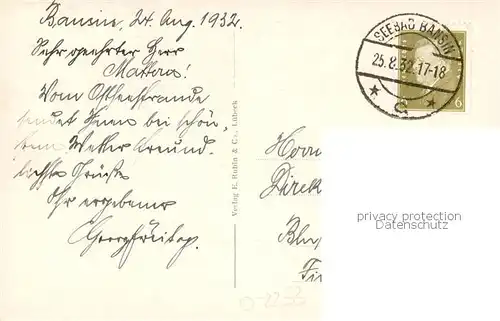 Bansin, 24. Aug. 1932.
Sehr geehrter Herr
Mattern!
Vom Ostseestrande
sendet Ihnen bei schön-
stem Wetter freund-
lichste Grüße
Ihr ergebener
Georg Freitag.
Verlag E. Rublin & Co., Lübeck
SEEBAD BANSIN
25.8.32.17-18
* c *
6
Herrn
Direk
Fi
privacy protection
Datenschutz